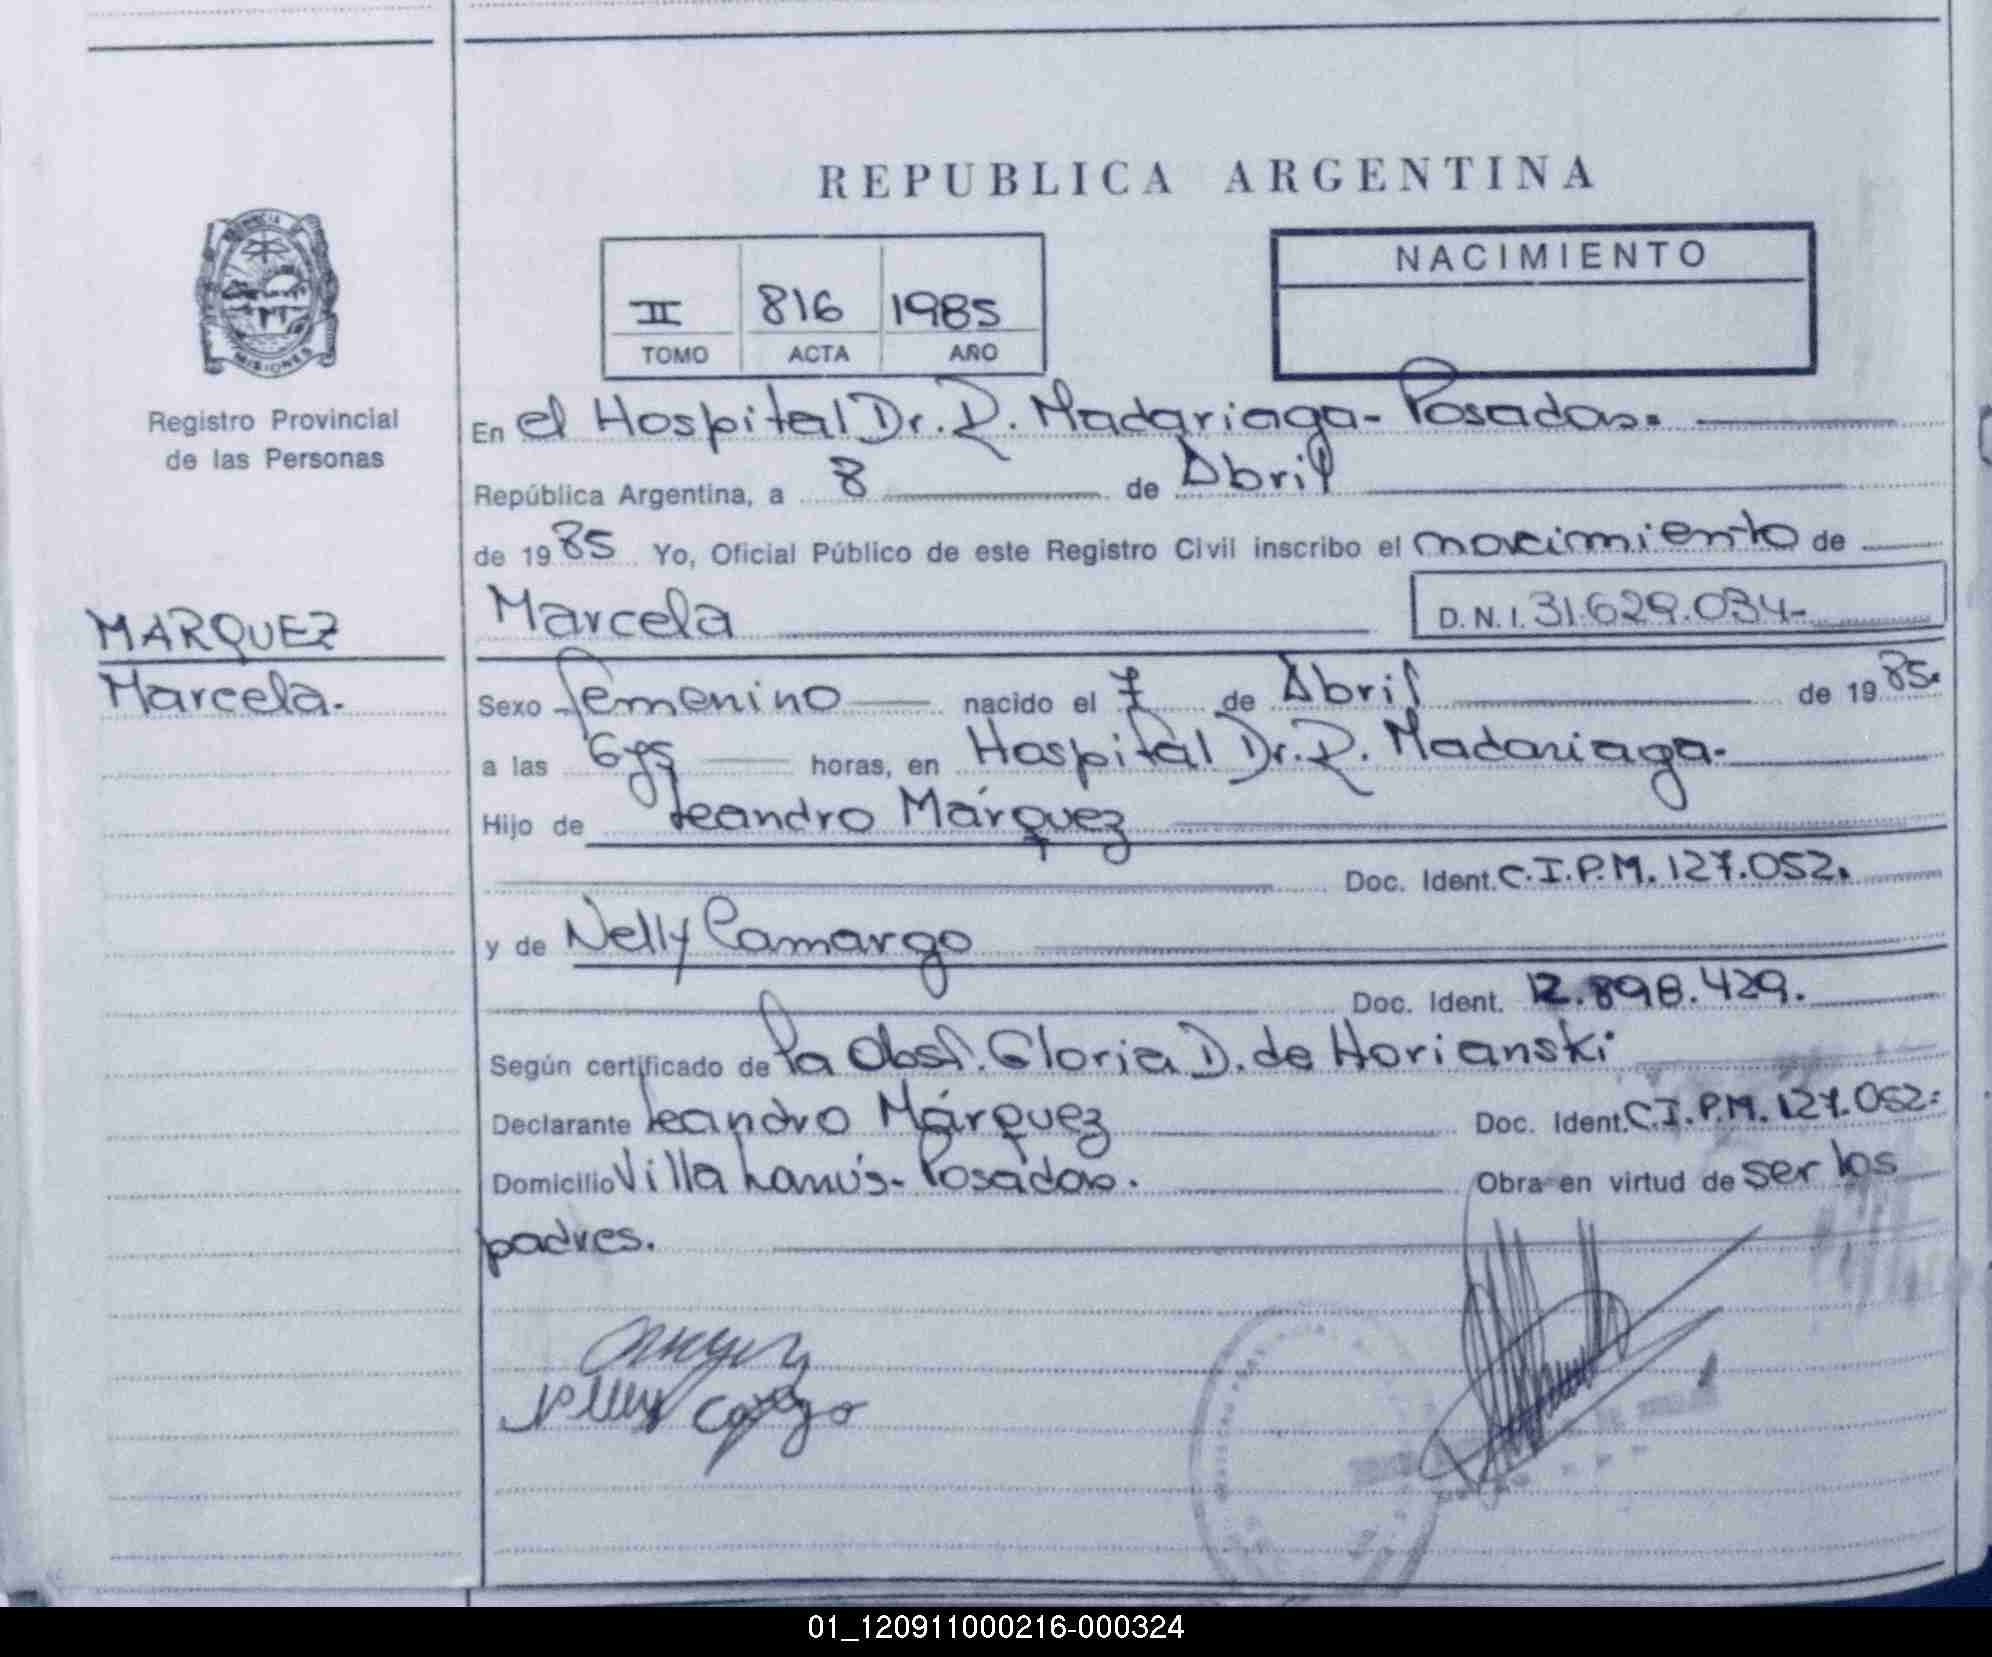 REPUBLICA ARGENTINA
PROVINCIA
MISIONES
Registro Provincial
de las Personas
II 816 1985
TOMO ACTA AÑO
NACIMIENTO
En el Hospital Dr. R. Madariaga - Posadas.
República Argentina, a 8 de Abril
de 1985 Yo, Oficial Público de este Registro Civil inscribo el nacimiento de
MARQUEZ
Marcela.
Marcela D.N.I. 31.629.034-
Sexo femenino nacido el 7 de Abril de 1985.
a las 6 horas, en Hospital Dr. R. Madariaga.
Hijo de Leandro Márquez
Doc. Ident. C.I.P.M. 127.052.
y de Nelly Camargo
Doc. Ident. 12.898.429.
Según certificado de la Obst. Gloria D. de Horianski
Declarante Leandro Márquez Doc. Ident. C.I.P.M. 127.052.
Domicilio Villa Lanús - Posadas. Obra en virtud de ser los
padres.
01_120911000216-000324